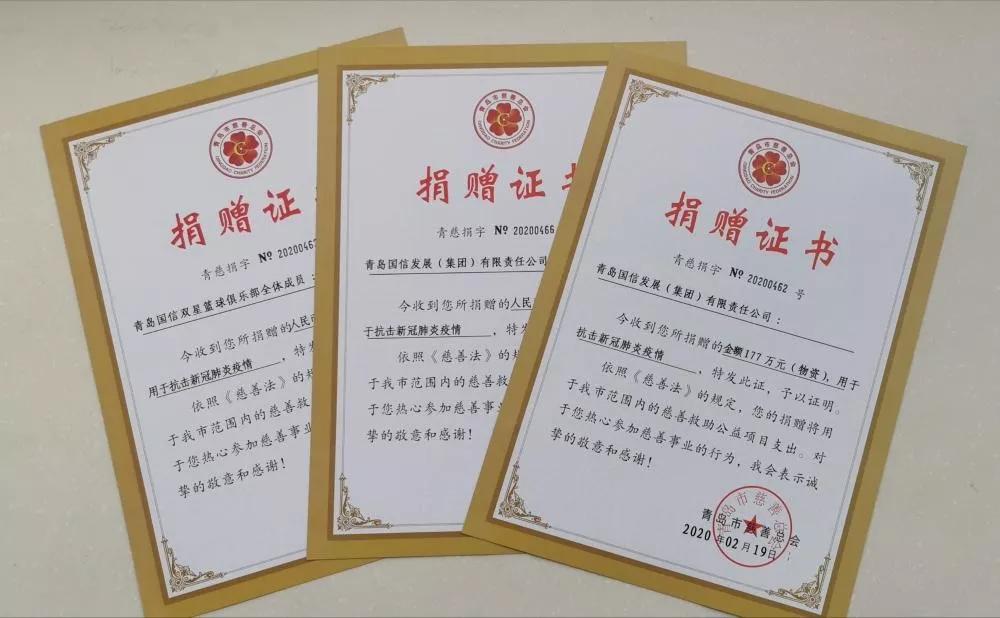 青岛市慈善总会
QINGDAO CHARITY FEDERATION
捐赠证
青慈捐字 № 2020046
青岛国信双星篮球俱乐部全体成员：
今收到您所捐赠的人民
用于抗击新冠肺炎疫情，特
依照《慈善法》的规
于我市范围内的慈善救
于您热心参加慈善事业
挚的敬意和感谢！
青岛市慈善总会
QINGDAO CHARITY FEDERATION
捐赠证
青慈捐字 № 20200466
青岛国信发展（集团）有限责任公司
今收到您所捐赠的人民
于抗击新冠肺炎疫情，特发
依照《慈善法》的规
于我市范围内的慈善救
于您热心参加慈善事业
挚的敬意和感谢！
青岛市慈善总会
QINGDAO CHARITY FEDERATION
捐赠证书
青慈捐字 № 20200462 号
青岛国信发展（集团）有限责任公司：
今收到您所捐赠的金额177万元（物资），用于
抗击新冠肺炎疫情，特发此证，予以证明。
依照《慈善法》的规定，您的捐赠将用
于我市范围内的慈善救助公益项目支出。对
于您热心参加慈善事业的行为，我会表示诚
挚的敬意和感谢！
青岛市慈善总会
2020年02月19日
青岛市慈善总会